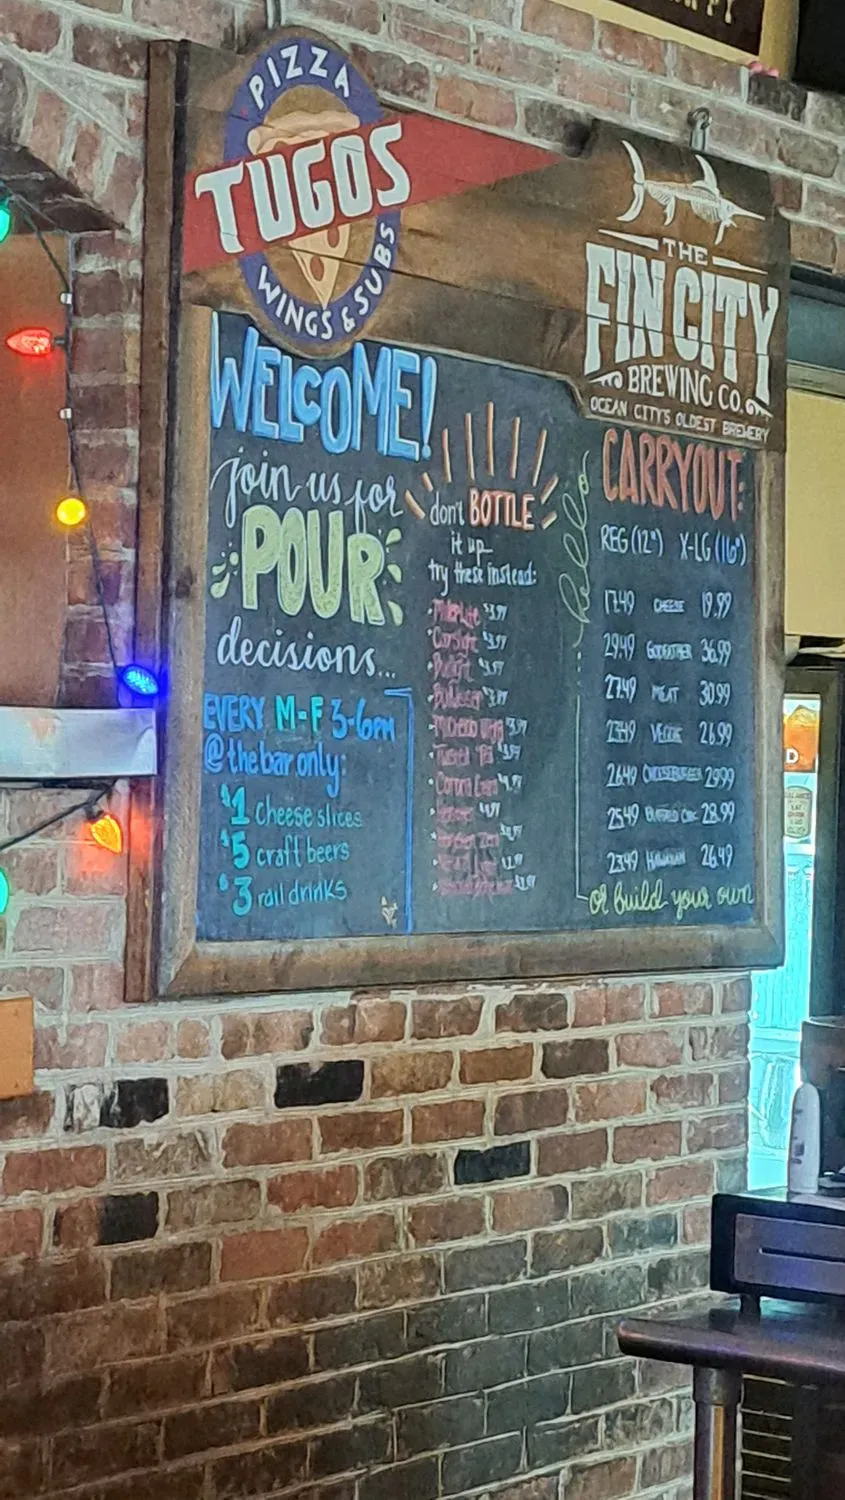 PIZZA
TUGOS
WINGS & SUBS
THE
FIN CITY
BREWING CO.
OCEAN CITY'S OLDEST BREWERY
WELCOME!
join us for
POUR
decisions...
EVERY M-F 3-6pm
@ the bar only:
$1 cheese slices
$5 craft beers
$3 rail drinks
don't BOTTLE
it up
try these instead:
Miller Lite $3.99
Coors Light $3.99
Bud Light $3.99
Budweiser $3.99
Michelob Ultra $3.99
Twisted Tea
Corona
hello
CARRYOUT:
REG (12") X-LG (16")
17.49 CHEESE 19.99
29.49 GODFATHER 36.99
27.49 MEAT 30.99
23.49 VEGGIE 26.99
26.49 CHEESEBURGER 29.99
25.49 BUFFALO CHIC 28.99
23.49 HAWAIIAN 26.49
or build your own